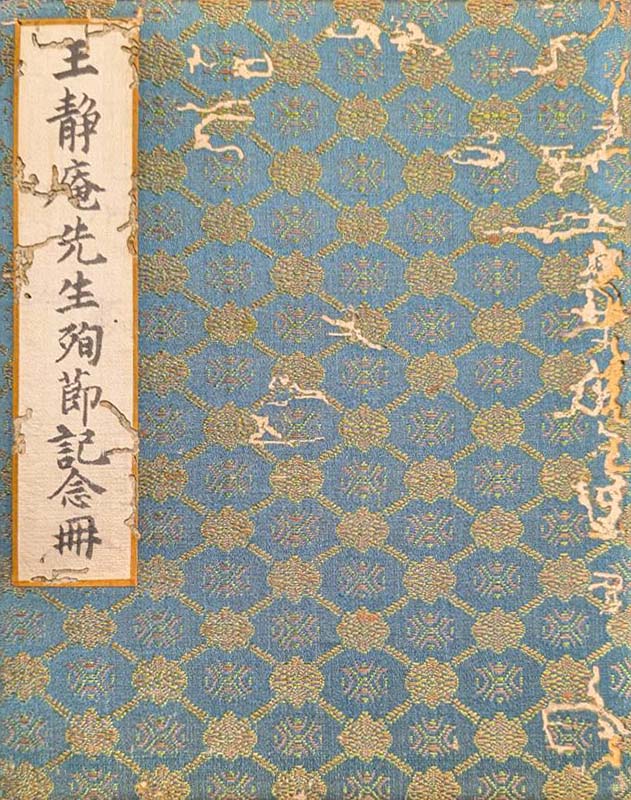 王靜庵先生殉節記念冊